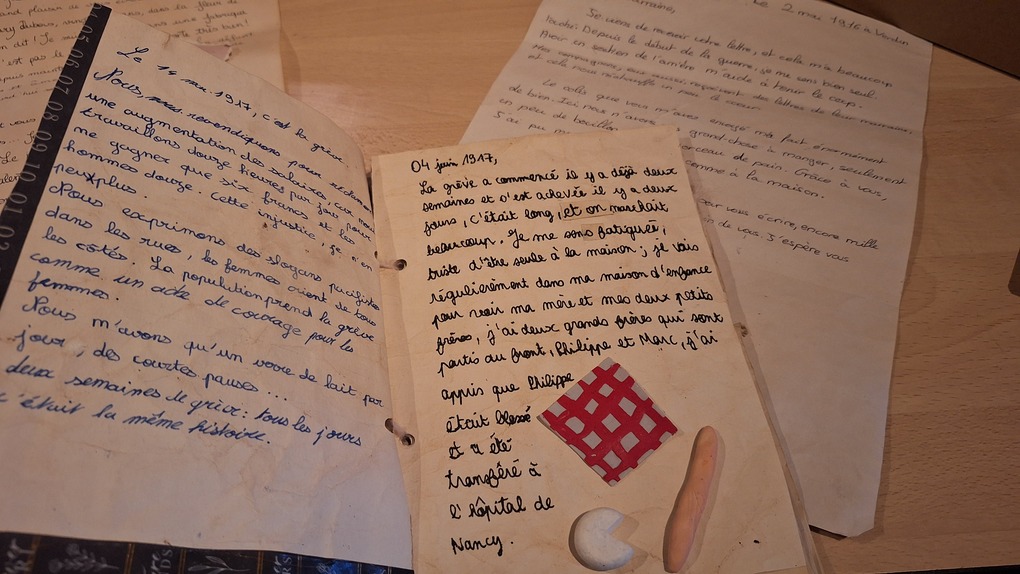 Le 14 mai 1917, c'est la grève.
Nous revendiquons pour réclamer
une augmentation des salaires, car nous
travaillons douze heures par jour pour
ne gagner que six francs et les
hommes douze. Cette injustice, je n'en
peux plus.
Nous exprimons des slogans pacifistes
dans les rues, les femmes crient de tous
les côtés. La population prend la grève
comme un acte de courage pour les
femmes.
Nous m'avons qu'un verre de lait par
jour, des courtes pauses...
deux semaines de grève: tous les jours
c'était la même histoire.
04 juin 1917,
La grève a commencé il y a déjà deux
semaines et s'est achevée il y a deux
jours, c'était long, et on marchait
beaucoup. Je me sens fatiguée,
triste d'être seule à la maison; je vais
régulièrement dans ma maison d'enfance
pour voir ma mère et mes deux petits
frères, j'ai deux grands frères qui sont
partis au front, Philippe et Marc, j'ai
appris que Philippe
était blessé
et a été
transféré à
l'hôpital de
Nancy.
Le 2 mai 1916 à Verdun
Je viens de recevoir votre lettre, et cela m'a beaucoup
touché. Depuis le début de la guerre, je me sens bien seul.
Avoir un soutien de l'arrière m'aide à tenir le coup.
Mes compagnons, eux aussi, reçoivent des lettres de leur marraine,
et cela nous réchauffe un peu le coeur.
Le colis que vous m'avez envoyé m'a fait énormément
de bien. Ici, nous n'avons grand-chose à manger, seulement
un peu de bouillon morceau de pain. Grâce à vous,
J'ai pu comme à la maison.
pour vous écrire, encore mille
de vous. J'espère vous